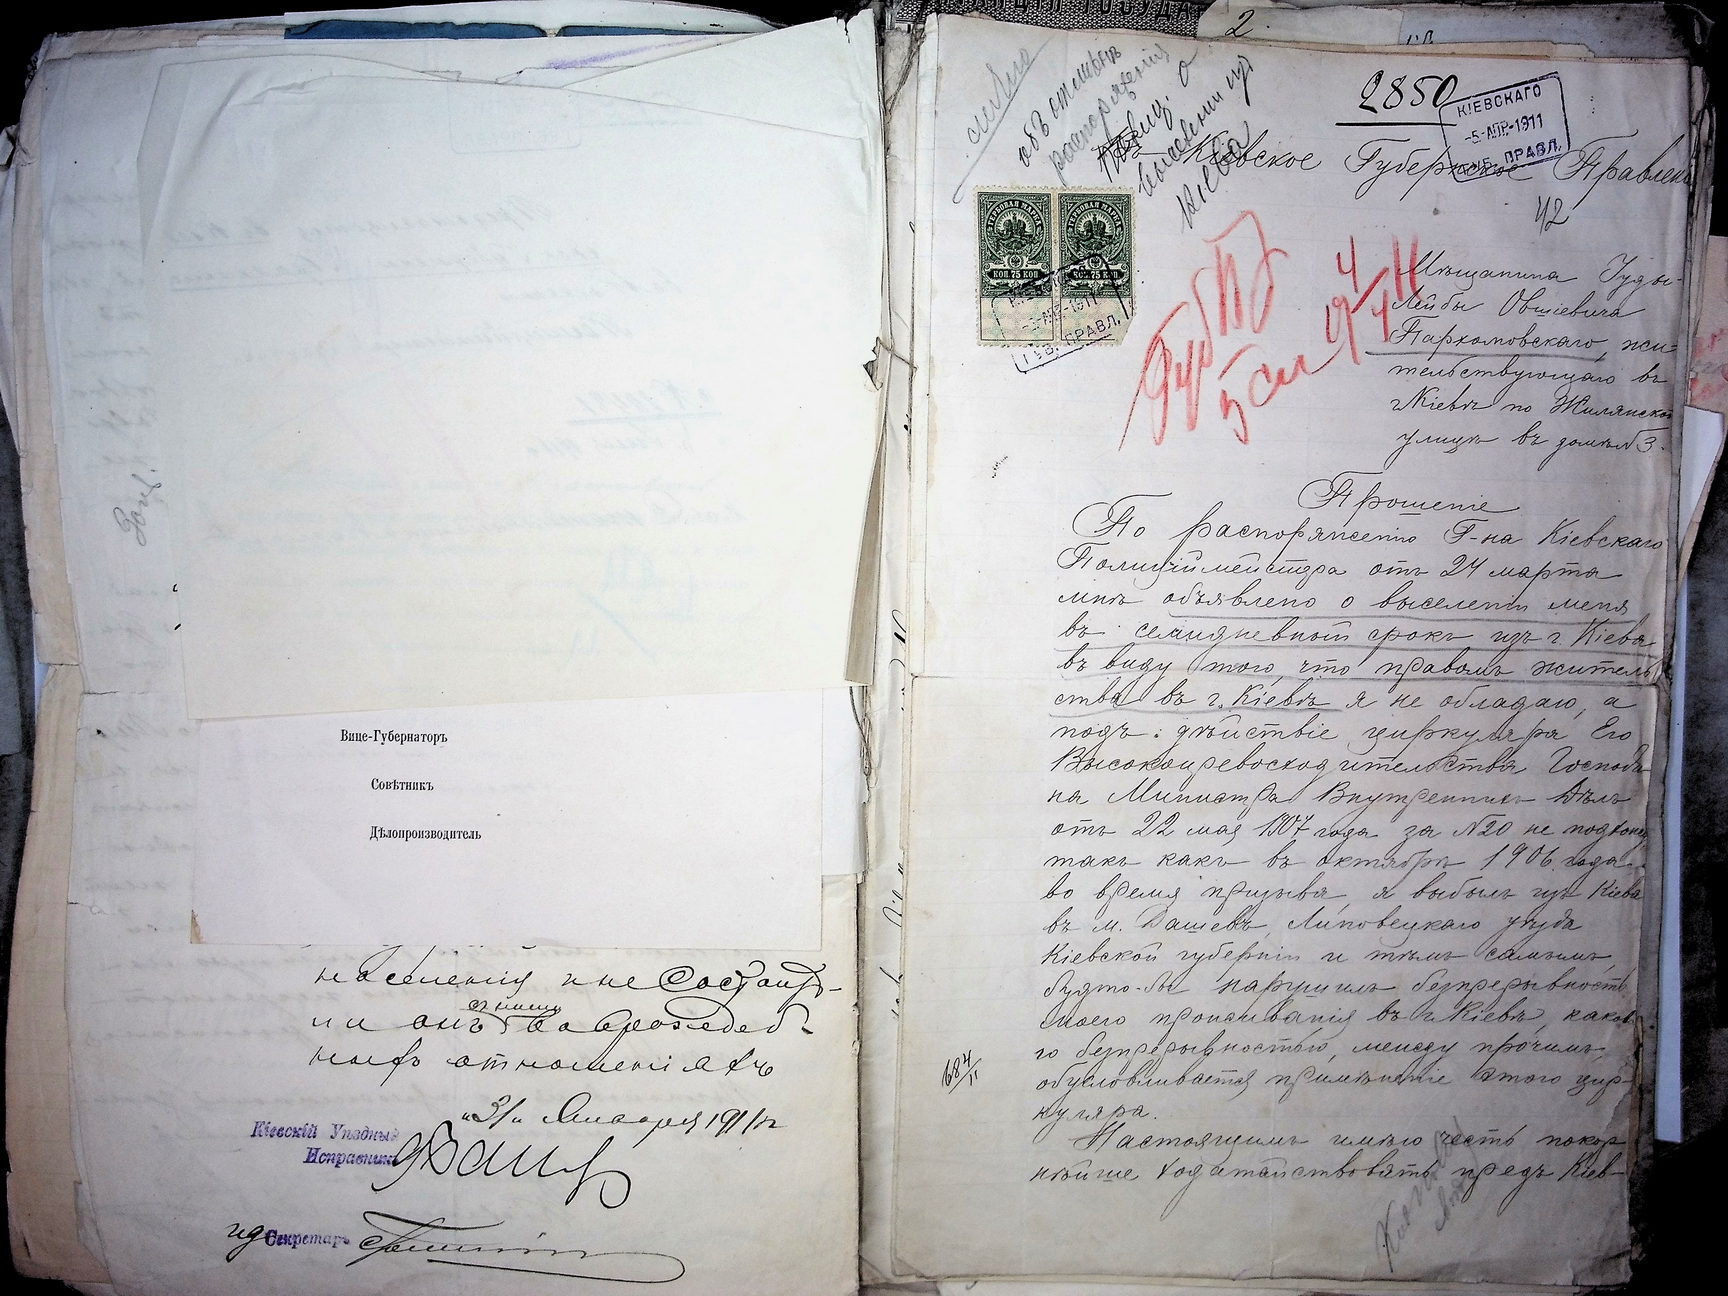 Вице-Губернаторъ
Совѣтникъ
Дѣлопроизводитель
населенія и не состоял-
ли онъ съ ними во враждеб-
ныхъ отношеніяхъ
"31" Января 1911 г
Кіевскій Уѣздный
Исправникъ
ид Секретарь
2
2850
КІЕВСКАГО
-5-АПР-1911
ГУБ. ПРАВЛ.
объ отмѣнѣ
распоряженія
Полиц. о
выселеніи изъ
Кіева
Въ Кіевское Губернское Правлен
42
ГЕРБОВАЯ МАРКА ГЕРБОВАЯ МАРКА
КОП. 75 КОП КОП. 75 КОП
-5-АПР-1911
ГУБ. ПРАВЛ.
Мѣщанина Іуды-
Лейбы Овшіевича
Пархомовскаго, жи-
тельствующаго въ
г. Кіевѣ по Жилянской
улицѣ въ домѣ № 3.
Прошеніе
По распоряженію Г-на Кіевскаго
Полиційместера отъ 24 марта
мнѣ объявлено о выселеніи меня
въ семидневный срокъ изъ г. Кіева
въ виду того, что правомъ житель
ства въ г. Кіевѣ я не обладаю, а
подъ дѣйствіе циркуляра Его
Высокопревосходительства Господи
на Министра Внутреннихъ Дѣлъ
отъ 22 мая 1907 года за № 20 не подхожу
такъ какъ въ октябрѣ 1906 года
во время призыва, я выбылъ изъ Кіева
въ м. Дашевъ, Липовецкаго уѣзда
Кіевской губерніи и тѣмъ самымъ,
будто-бы нарушилъ безпрерывность
моего проживанія въ г. Кіевѣ, како
го безпрерывностью, между прочимъ,
обусловливается примѣненіе этого цир-
куляра.
684/11
Настоящимъ имѣю честь покор
нѣйше ходатайствовать предъ Кіев-